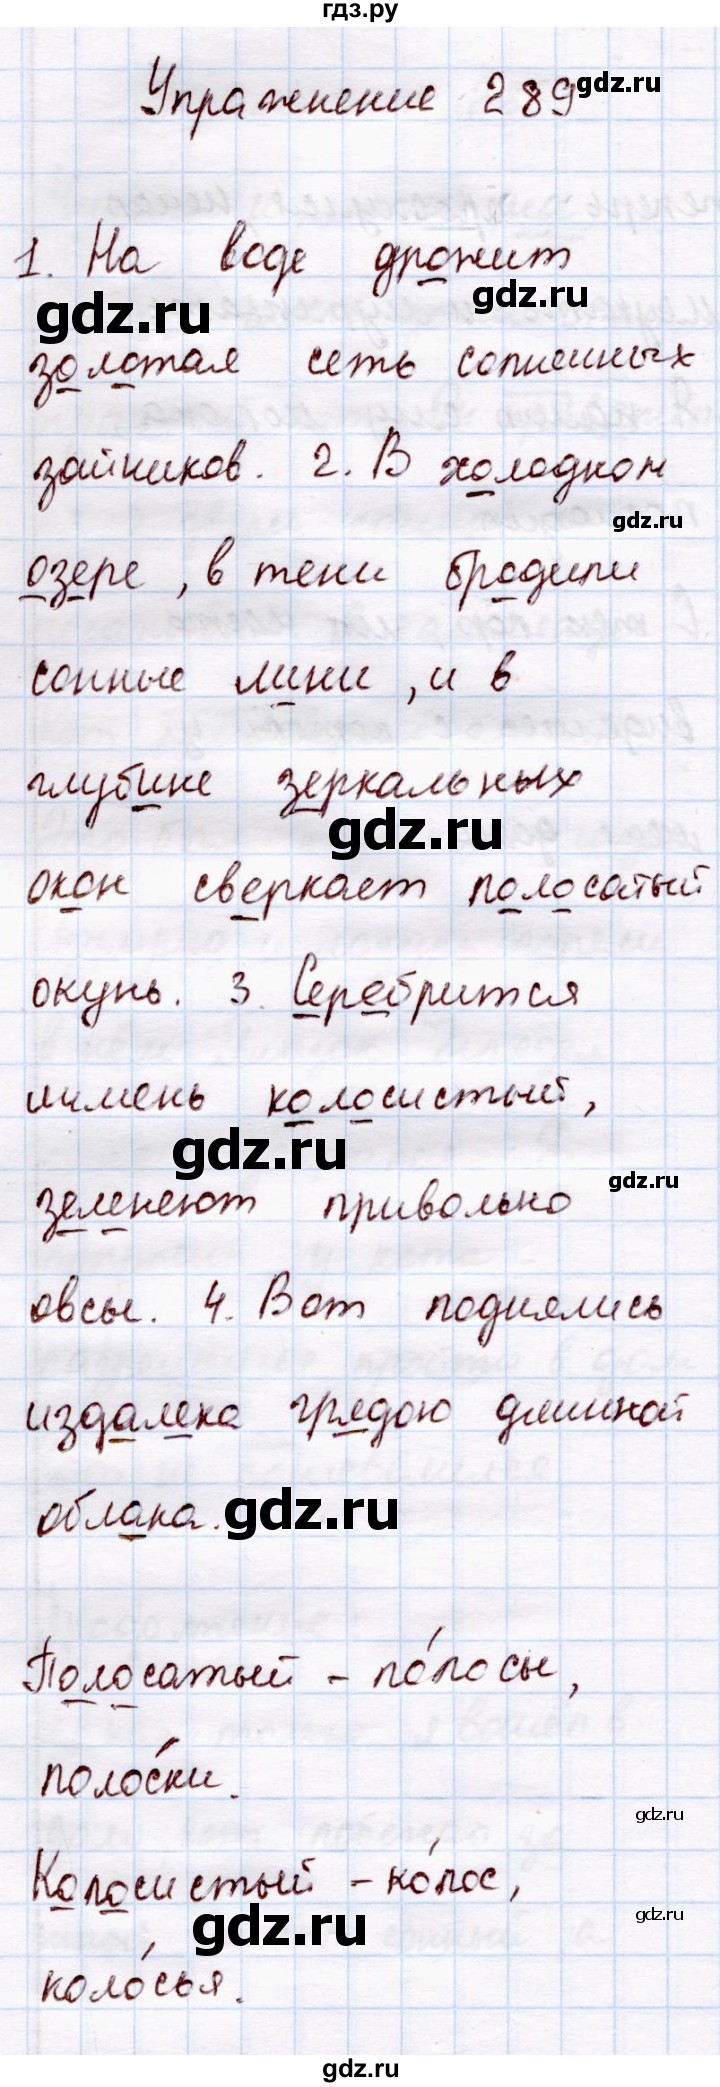 гдз.ру
Упражнение 289
gdz.ru
1. На воде дрожит
gdz.ru
gdz.ru
золотая сеть солнечных
зайчиков. 2. В холодном
gdz.ru
озере, в тени бродили
сонные лини, и в
глубине зеркальных
gdz.ru
окон сверкает полосатый
окунь. 3. Серебрится
ячмень колосистый,
gdz.ru
gdz.ru
зеленеют привольно
овсы. 4. Вот поднялись
издалека грядою длинной
облака.
gdz.ru
Полосатый - по́лосы,
поло́ски.
gdz.ru
Колосистый - ко́лос,
gdz.ru
gdz.ru
коло́сья.
gdz.ru